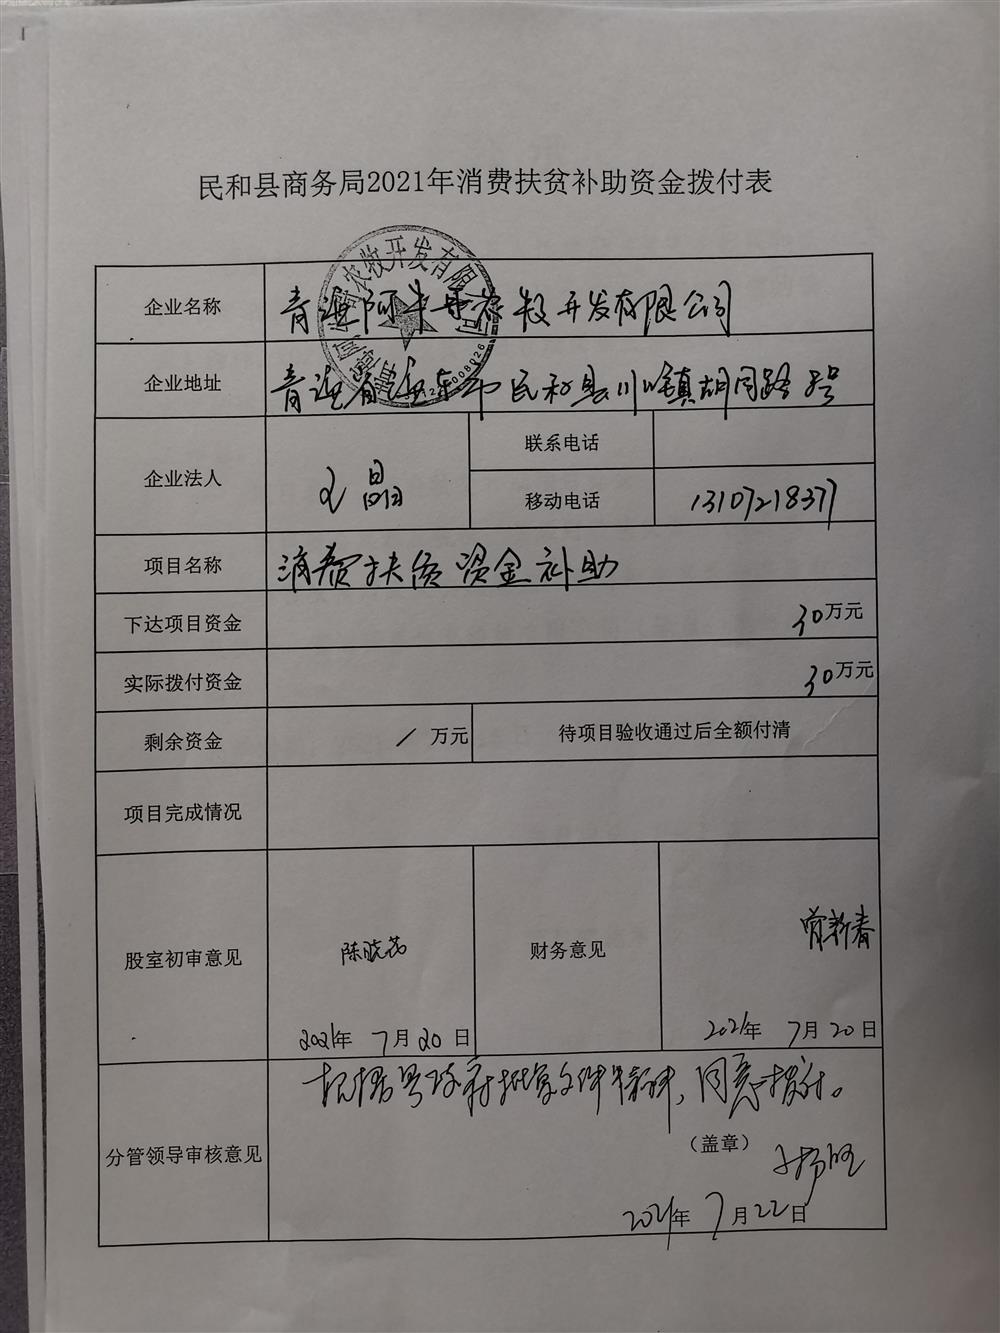 民和县商务局2021年消费扶贫补助资金拨付表
农牧开发有限
企业名称 青海阿牛丹农牧开发有限公司
企业地址 青海省海东市民和县川口镇胡同路 号
企业法人 王晶 联系电话
移动电话 13107218377
项目名称 消费扶贫资金补助
下达项目资金 30万元
实际拨付资金 30万元
剩余资金 / 万元 待项目验收通过后全额付清
项目完成情况
股室初审意见 陈晓芳 财务意见 新春
2021年 7月20日 2021年 7月20日
根据县政府批复文件精神，同意拨付。
分管领导审核意见 （盖章） 杨旺
2021年 7月22日